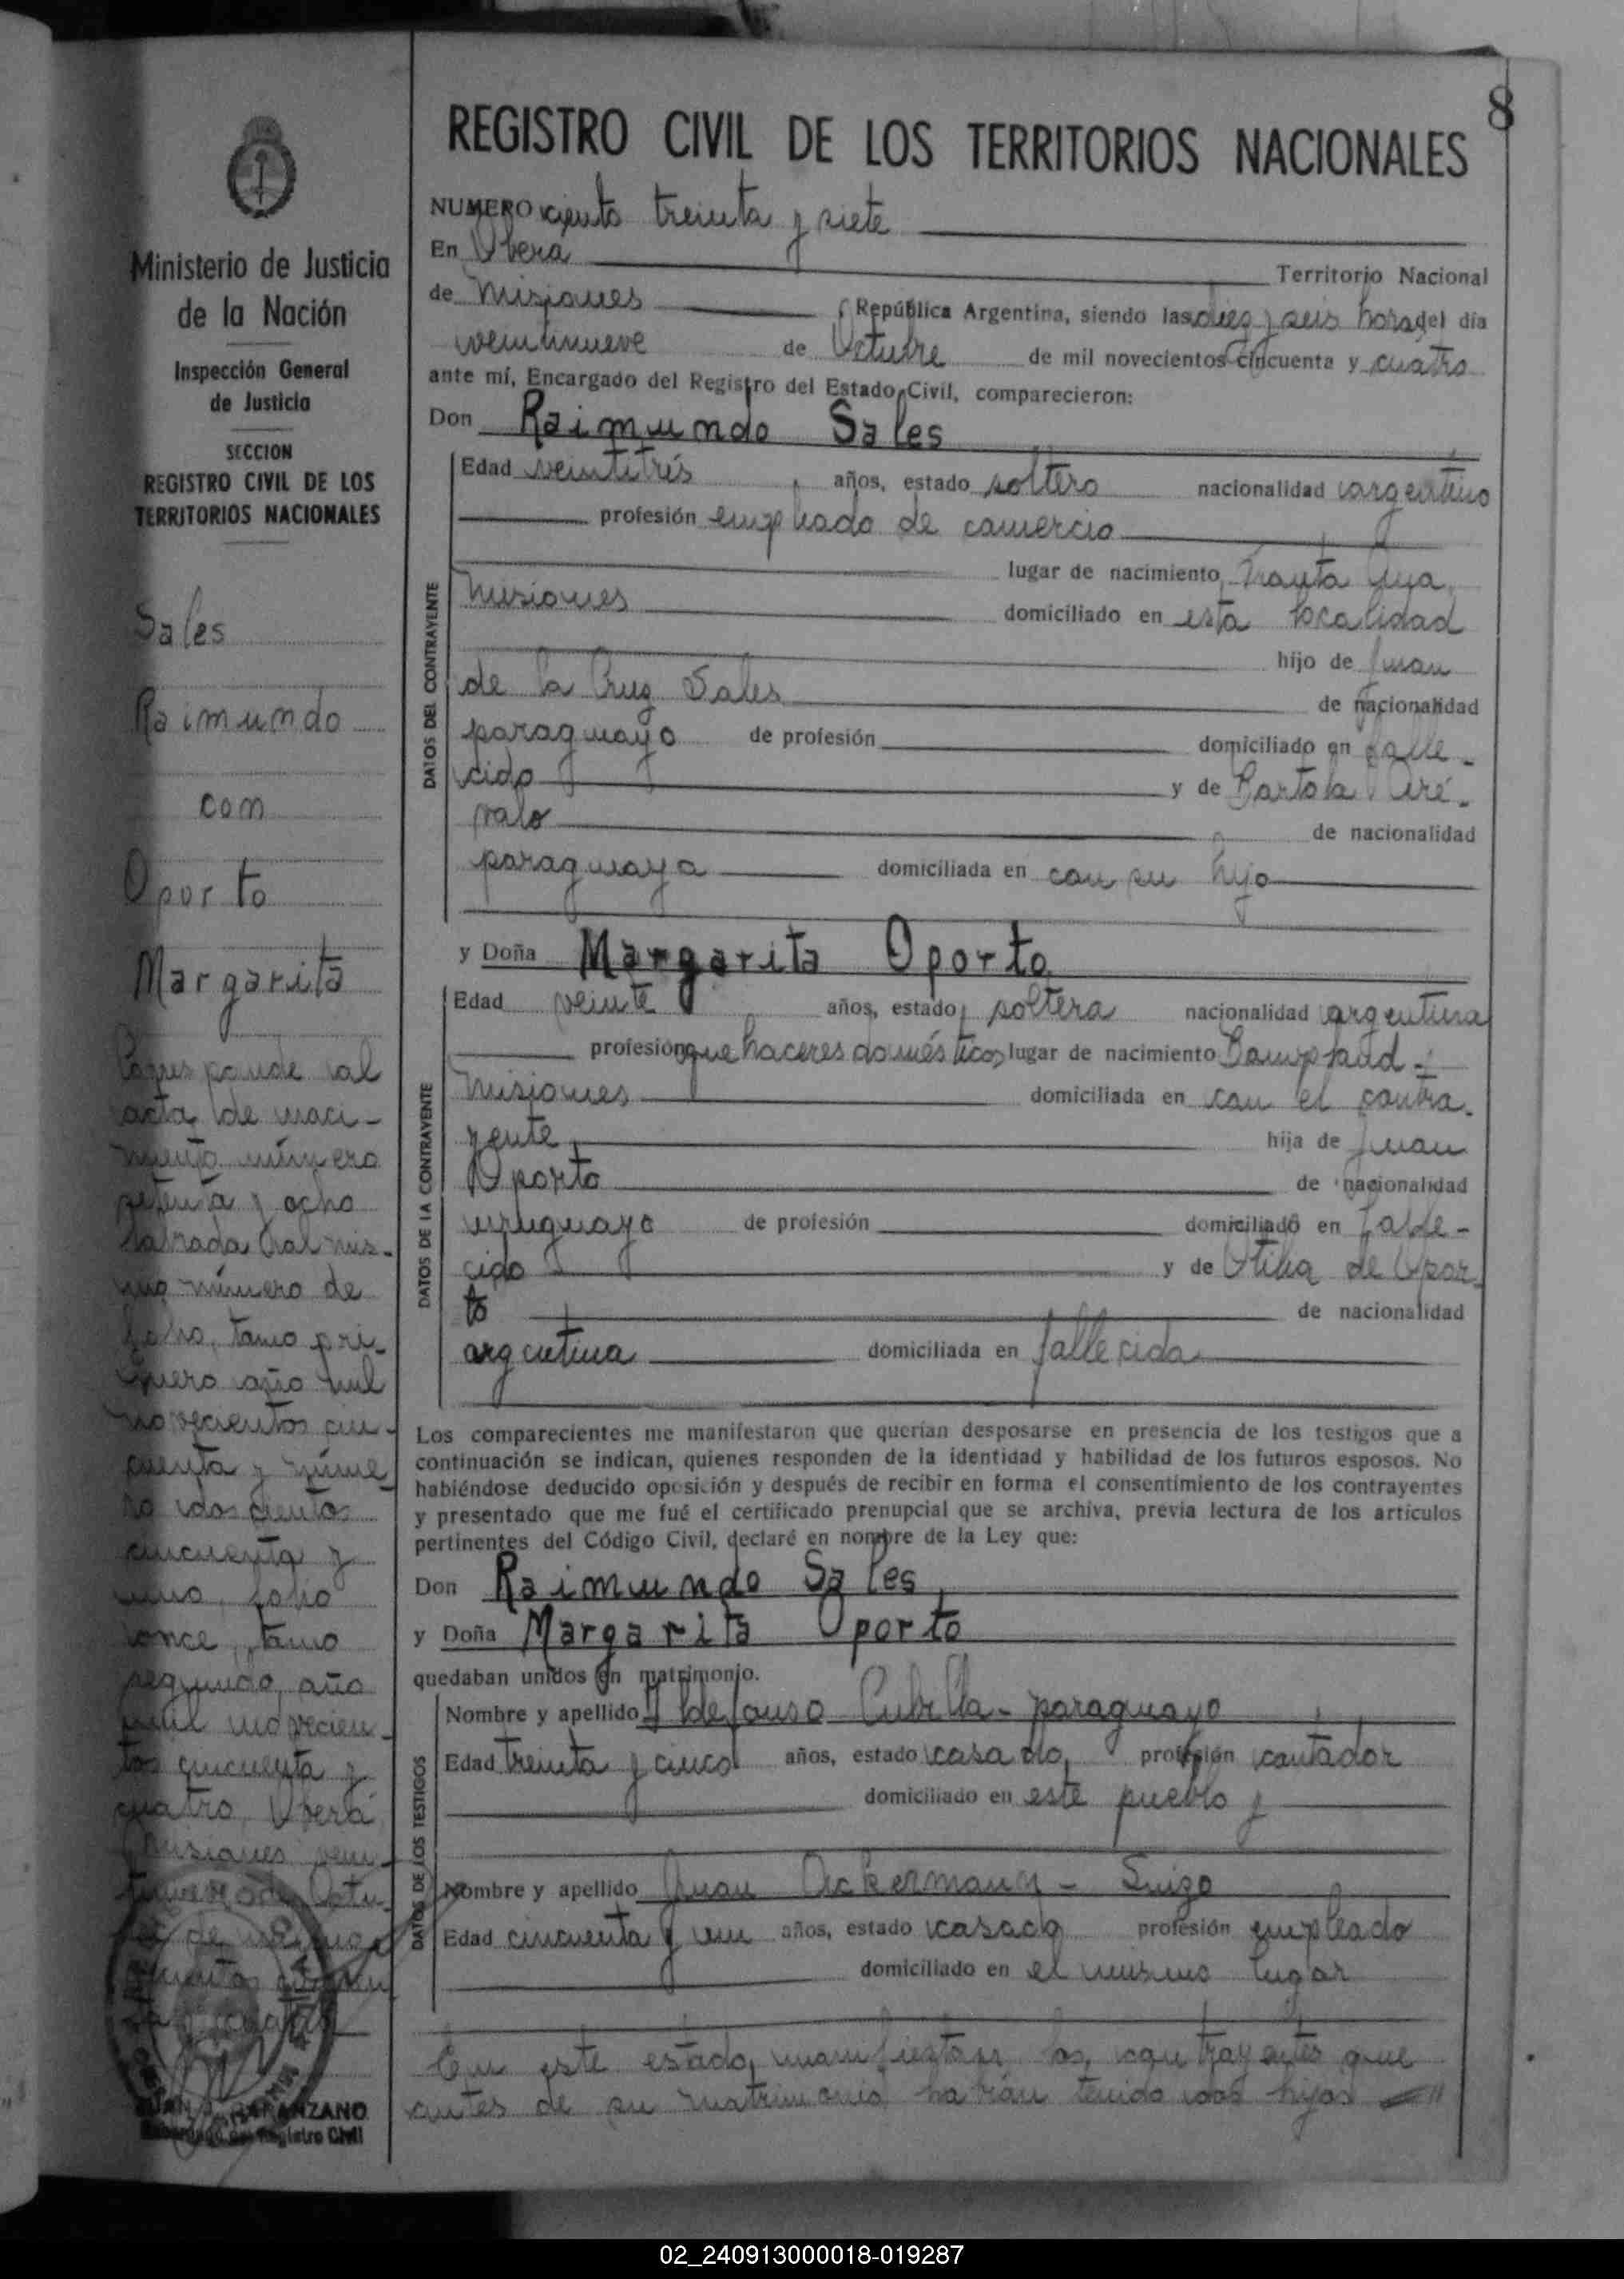 8
REGISTRO CIVIL DE LOS TERRITORIOS NACIONALES
Ministerio de Justicia
de la Nación
Inspección General
de Justicia
SECCION
REGISTRO CIVIL DE LOS
TERRITORIOS NACIONALES
Sales
Raimundo
con
Oporto
Margarita
Corresponde al
acta de naci-
miento número
setenta y ocho
labrada al mis-
mo número de
folio, tomo pri-
mero año mil
novecientos cin-
cuenta y núme
ro doscientos
cincuenta y
uno, folio
once, tomo
segundo, año
mil novecien-
tos cincuenta y
cuatro, Oberá
Misiones vein-
tinueve de Octu-
bre de mil nove
cientos cincuen
ta y cuatro
NUMERO ciento treinta y siete
En Obera Territorio Nacional
de Misiones República Argentina, siendo las diez y seis horas del día
veintinueve de Octubre de mil novecientos cincuenta y cuatro
ante mí, Encargado del Registro del Estado Civil, comparecieron:
Don Raimundo Sales
Edad veintitrés años, estado soltero nacionalidad argentino
profesión empleado de comercio
lugar de nacimiento,
Misiones domiciliado en esta localidad
hijo de Juan
de la Cruz Sales de nacionalidad
paraguayo de profesión domiciliado en falle-
cido y de Bartola Aré-
valo de nacionalidad
paraguaya domiciliada en con su hijo
DATOS DEL CONTRAYENTE
y Doña Margarita Oporto
Edad veinte años, estado soltera nacionalidad argentina
profesión quehaceres domésticos lugar de nacimiento Bompland -
Misiones domiciliada en con el contra-
yente hija de Juan
Oporto de nacionalidad
uruguayo de profesión domiciliado en falle-
cido y de Otilia de Opor-
to de nacionalidad
argentina domiciliada en fallecida
DATOS DE LA CONTRAYENTE
Los comparecientes me manifestaron que querían desposarse en presencia de los testigos que a
continuación se indican, quienes responden de la identidad y habilidad de los futuros esposos. No
habiéndose deducido oposición y después de recibir en forma el consentimiento de los contrayentes
y presentado que me fué el certificado prenupcial que se archiva, previa lectura de los artículos
pertinentes del Código Civil, declaré en nombre de la Ley que:
Don Raimundo Sales
y Doña Margarita Oporto
quedaban unidos en matrimonio.
Nombre y apellido Ildefonso Cubilla - paraguayo
Edad treinta y cinco años, estado casado, profesión contador
domiciliado en este pueblo y
Nombre y apellido Juan Ackermann - Suizo
Edad cincuenta y un años, estado casado profesión empleado
domiciliado en el mismo lugar
DATOS DE LOS TESTIGOS
En este estado, manifiestan los contrayentes que
antes de su matrimonio habían tenido dos hijos
Encargado del Registro Civil
02_240913000018-019287